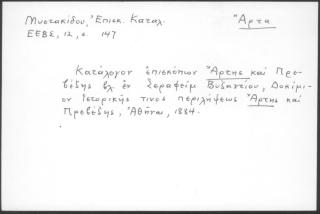 Μυστακίδου, Ἐπισκ. Καταλ.
Ἄρτα
ΕΕΒΣ, 12, σ. 147
Κατάλογον ἐπισκόπων Ἄρτης καὶ Πρε-
βέζης βλ ἐν Σεραφεὶμ Βυζαντίου, Δοκίμι-
ον ἱστορικῆς τινος περιλήψεως Ἄρτης καὶ
Πρεβέζης, Ἀθῆναι, 1884.